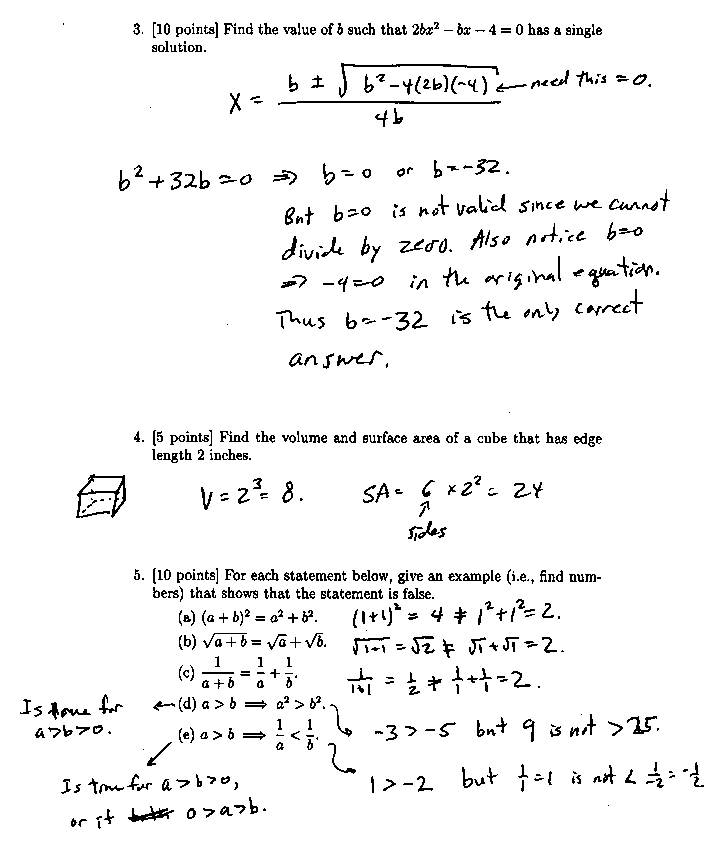 3. [10 points] Find the value of b such that 2bx² − bx − 4 = 0 has a single
solution.
X = b ± √b²-4(2b)(-4) / 4b ← need this = 0.
b² + 32b = 0 ⇒ b = 0 or b = -32.
But b=0 is not valid since we cannot
divide by zero. Also notice b=0
⇒ -4=0 in the original equation.
Thus b = -32 is the only correct
answer.
4. [5 points] Find the volume and surface area of a cube that has edge
length 2 inches.
V = 2³ = 8. SA = 6 × 2² = 24
↑
sides
5. [10 points] For each statement below, give an example (i.e., find num-
bers) that shows that the statement is false.
(a) (a + b)² = a² + b². (1+1)² = 4 ≠ 1²+1² = 2.
(b) √a + b = √a + √b. √1+1 = √2 ≠ √1 + √1 = 2.
(c) 1/a + b = 1/a + 1/b. 1/1+1 = 1/2 ≠ 1/1 + 1/1 = 2.
Is true for ← (d) a > b ⟹ a² > b².
a>b>0. (e) a > b ⟹ 1/a < 1/b. -3 > -5 but 9 is not > 25.
Is true for a>b>0, 1 > -2 but 1/1 = 1 is not < 1/-2 = -1/2
or if 0>a>b.